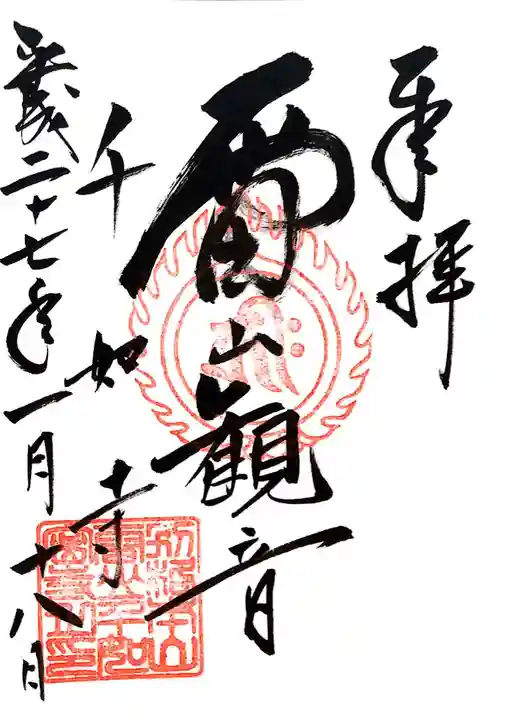 奉拝
雷山觀音
千如寺
平成二十七年一月十八日